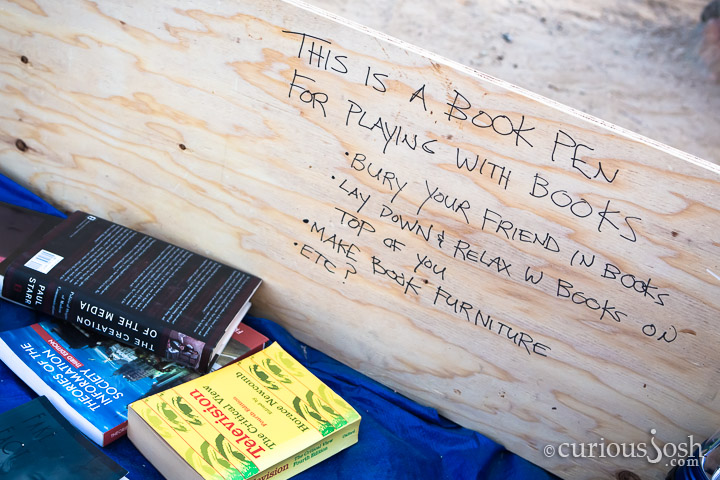 THIS IS A BOOK PEN
FOR PLAYING WITH BOOKS
• BURY YOUR FRIEND IN BOOKS
• LAY DOWN & RELAX W BOOKS ON
TOP OF YOU
• MAKE BOOK FURNITURE
• ETC?
PAUL STARR
THE CREATION
OF THE MEDIA
THEORIES OF THE
INFORMATION
SOCIETY
THIRD EDITION
Television
The Critical View
Fourth Edition
Horace Newcomb
Television
The Critical View
Fourth Edition
©curiousjosh
.com